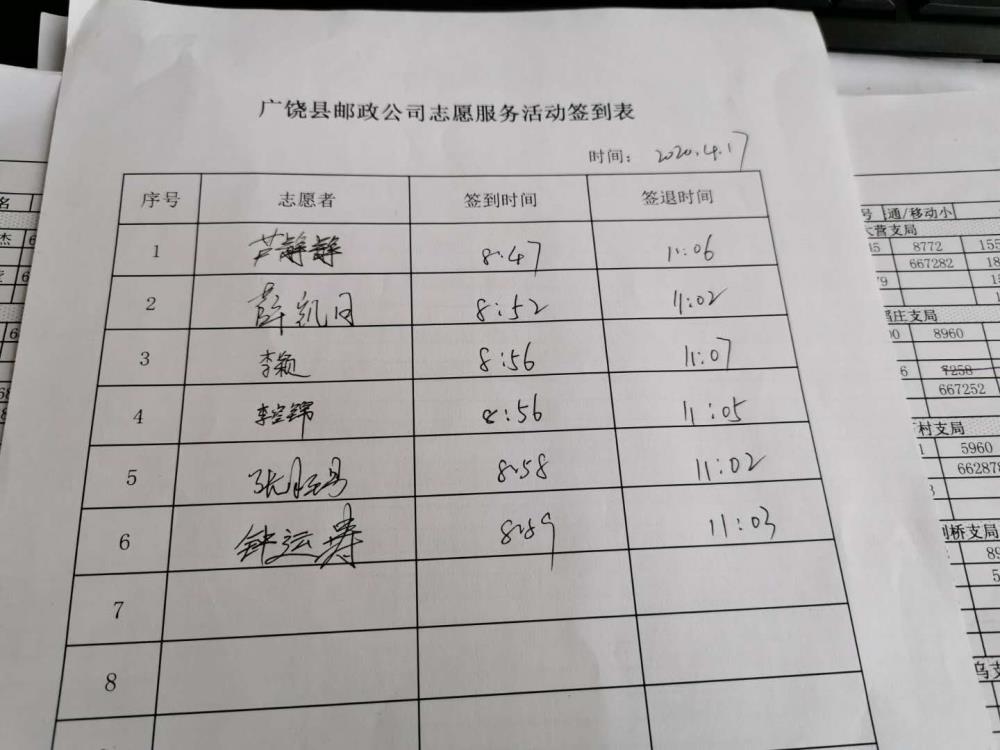 广饶县邮政公司志愿服务活动签到表
时间： 2020.4.17
序号 志愿者 签到时间 签退时间
1 芦静静 8:47 11:06
2 薛凯月 8:52 11:02
3 李颖 8:56 11:07
4 8:56 11:05
5 8:58 11:02
6 钟运寿 8:59 11:03
7
8
名
杰 6
6
6
号 通/移动小
大营支局
8772 155
667282 18
庄支局
8960
6 7258
667252
村支局
1 5960
66287
桥支局
89
5